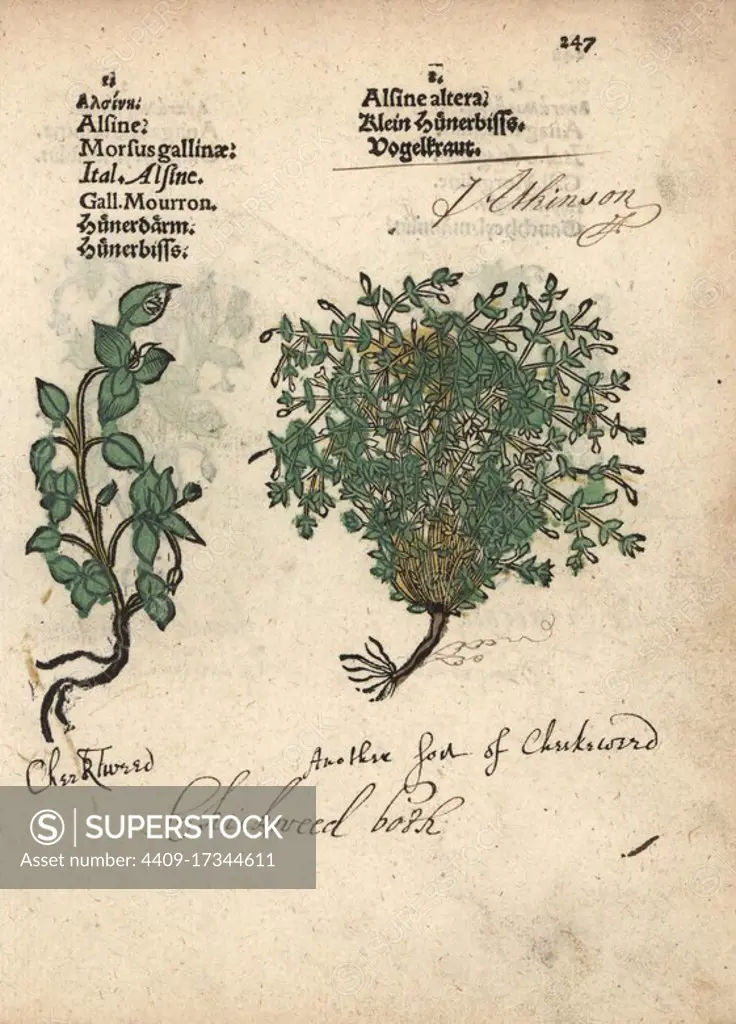 247
1.
Αλσίνη:
Alſine?
Morſus gallinæ:
Ital. Alſine.
Gall. Mourron.
Hünerdärm.
Hünerbiſſs.
2.
Alſine altera?
Klein Hünerbiſſs.
Vogelkraut.
J Atkinson
Checktweed
Another sort of Checkeweed
Chickweed both
SUPERSTOCK
Asset number: 4409-17344611